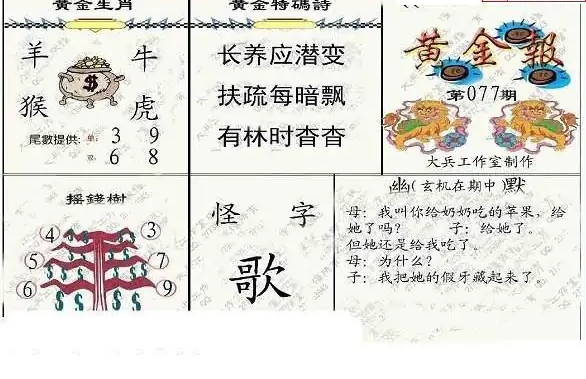 黃金生肖
羊 牛
猴 虎
尾數提供: 单: 3 9
双: 6 8
黃金特碼詩
长养应潜变
扶疏每暗飘
有林时杳杳
黄金報
第077期
大兵工作室制作
摇錢樹
4 3
5 7
6 9
怪 字
歌
幽(玄机在期中)默
母：我叫你给奶奶吃的苹果，给
她了吗？ 子：给她了。
但她还是给我吃了。
母：为什么？
子：我把她的假牙藏起来了。